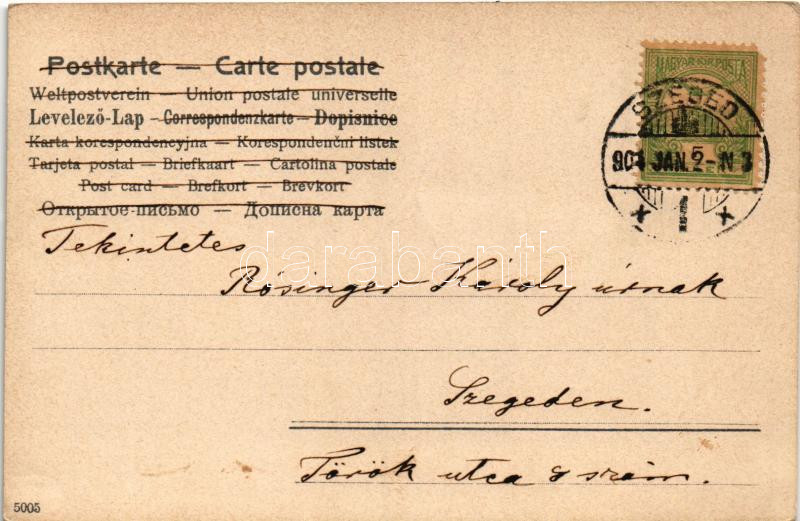 Postkarte — Carte postale
Weltpostverein — Union postale universelle
Levelező-Lap — Correspondenzkarte — Dopisnice
Karta korespondencyjna — Korespondenční listek
Tarjeta postal — Briefkaart — Cartolina postale
Post card — Brefkort — Brevkort
Открытое письмо — Дописна карта
MAGYAR KIR. POSTA
SZEGED
5
904 JAN. 2-N 3
Tekintetes
darabanth
Rósinger Károly úrnak
Szegeden.
Török utca 8 szám.
5005